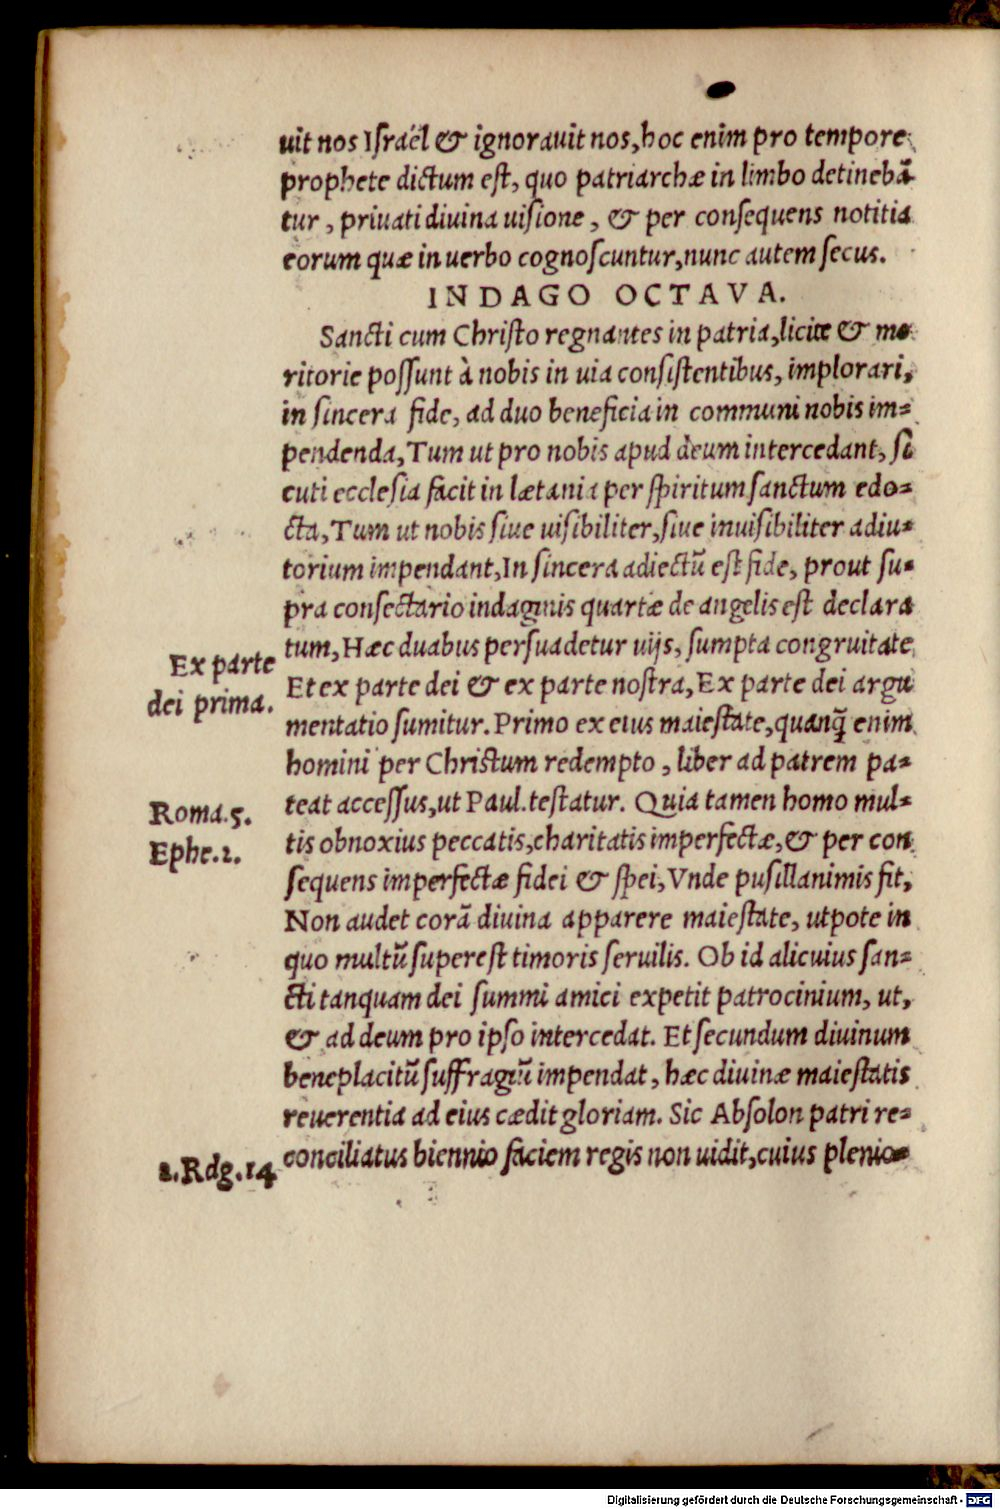 uit nos Iſraël & ignorauit nos, hoc enim pro tempore
prophete dictum eſt, quo patriarchæ in limbo detinebã
tur, priuati diuina uiſione, & per conſequens notitia
eorum quæ in uerbo cognoſcuntur, nunc autem ſecus.
INDAGO OCTAVA.
Sancti cum Chriſto regnantes in patria, licite & me
ritorie poſſunt à nobis in uia conſiſtentibus, implorari,
in ſincera fide, ad duo beneficia in communi nobis im=
pendenda, Tum ut pro nobis apud deum intercedant, ſi
cuti eccleſia facit in lætania per ſpiritum ſanctum edo=
cta, Tum ut nobis ſiue uiſibiliter, ſiue inuiſibiliter adiu=
torium impendant, In ſincera adiectũ eſt fide, prout ſu=
pra conſectario indaginis quartæ de angelis eſt declara
tum, Hæc duabus perſuadetur uijs, ſumpta congruitate
Ex parte
dei prima.
Et ex parte dei & ex parte noſtra, Ex parte dei argu
mentatio ſumitur. Primo ex eius maieſtate, quanq̃ enim
homini per Chriſtum redempto, liber ad patrem pa=
teat acceſſus, ut Paul. teſtatur. Quia tamen homo mul=
Roma.5.
Ephe.2.
tis obnoxius peccatis, charitatis imperfectæ, & per con
ſequens imperfectæ fidei & ſpei, Vnde puſillanimis fit,
Non audet corã diuina apparere maieſtate, utpote in
quo multũ ſupereſt timoris ſeruilis. Ob id alicuius ſan=
cti tanquam dei ſummi amici expetit patrocinium, ut,
& ad deum pro ipſo intercedat. Et ſecundum diuinum
beneplacitũ ſuffragiũ impendat, hæc diuinæ maieſtatis
reuerentia ad eius cædit gloriam. Sic Abſolon patri re=
conciliatus biennio faciem regis non uidit, cuius plenio=
2.Rdg.14
Digitalisierung gefördert durch die Deutsche Forschungsgemeinschaft - DFG